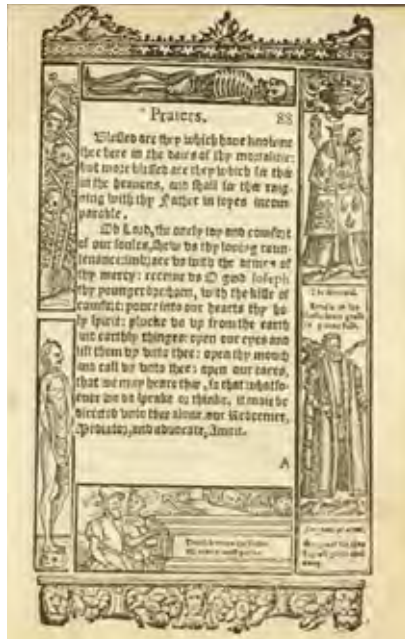 Praiers. 88
Blessed are they which have knowne
thee here in the daies of thy mortalitie:
but more blessed are they which see thee
in the heavens, and shall see thee raig-
ning with thy Father in ioyes incom-
parable.
Oh Lord, the onely ioy and comfort
of our soules, shew us thy loving coun-
tenance: imbrace us with the armes of
thy mercy: receive us O good Ioseph
thy younger brethren, with the kisse of
comfort: poure into our hearts thy ho-
ly spirit: plucke us up from the earth
and earthly thinges: open our eyes and
lift them up unto thee: open thy mouth
and call us unto thee: open our eares,
that we may heare thee, so that whatso-
ever we do speake or thinke, it maie be
directed unto thee alone our Redeemer,
Mediator, and advocate, Amen.
A